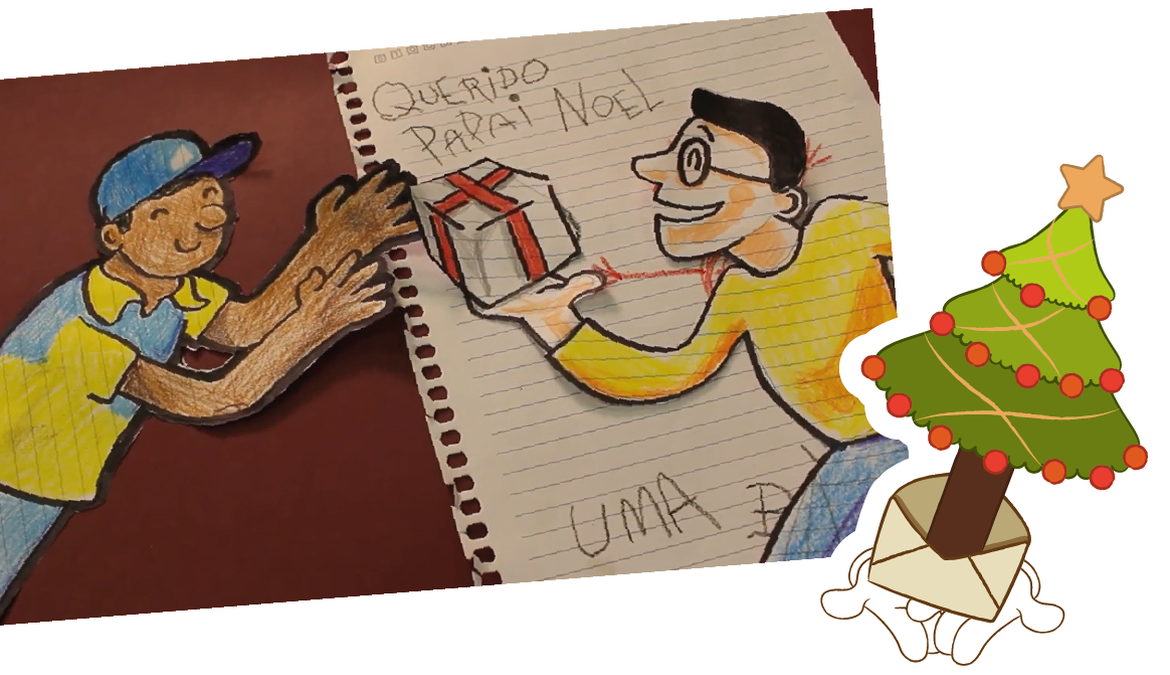 QUERIDO
PAPAI NOEL
UMA